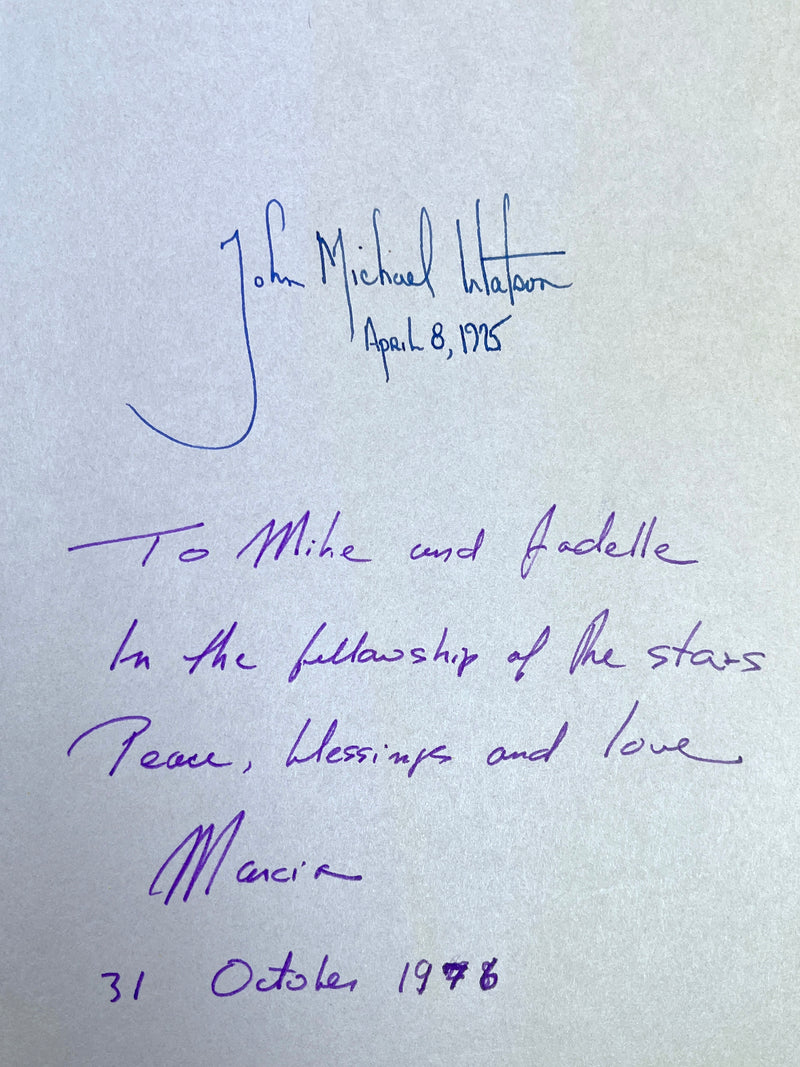 John Michael Watson
April 8, 1975
To Mike and Jadelle
In the fellowship of the stars
Peace, blessings and love
Marcia
31 October 1976